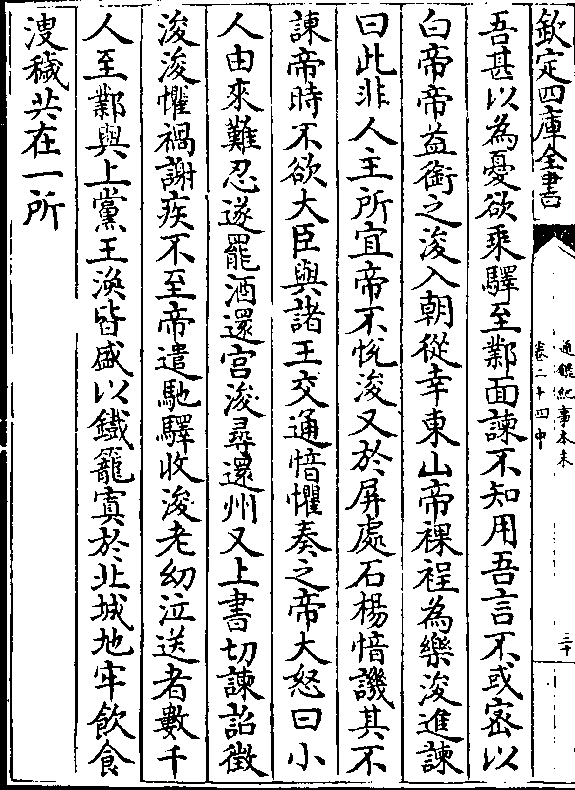 欽定四庫全書
通鑑紀事本末
卷二十四中
三十
吾甚以為憂欲乘驛至鄴面諫不知用吾言不或密以
白帝帝益銜之浚入朝從幸東山帝裸裎為樂浚進諫
曰此非人主所宜帝不悅浚又於屏處召楊愔譏其不
諫帝時不欲大臣與諸王交通愔懼奏之帝大怒曰小
人由來難忍遂罷酒還宫浚尋還州又上書切諫詔徵
浚浚懼禍謝疾不至帝遣馳驛收浚老幼泣送者數千
人至鄴與上黨王渙皆盛以鐵籠寘於北城地牢飲食
溲穢共在一所